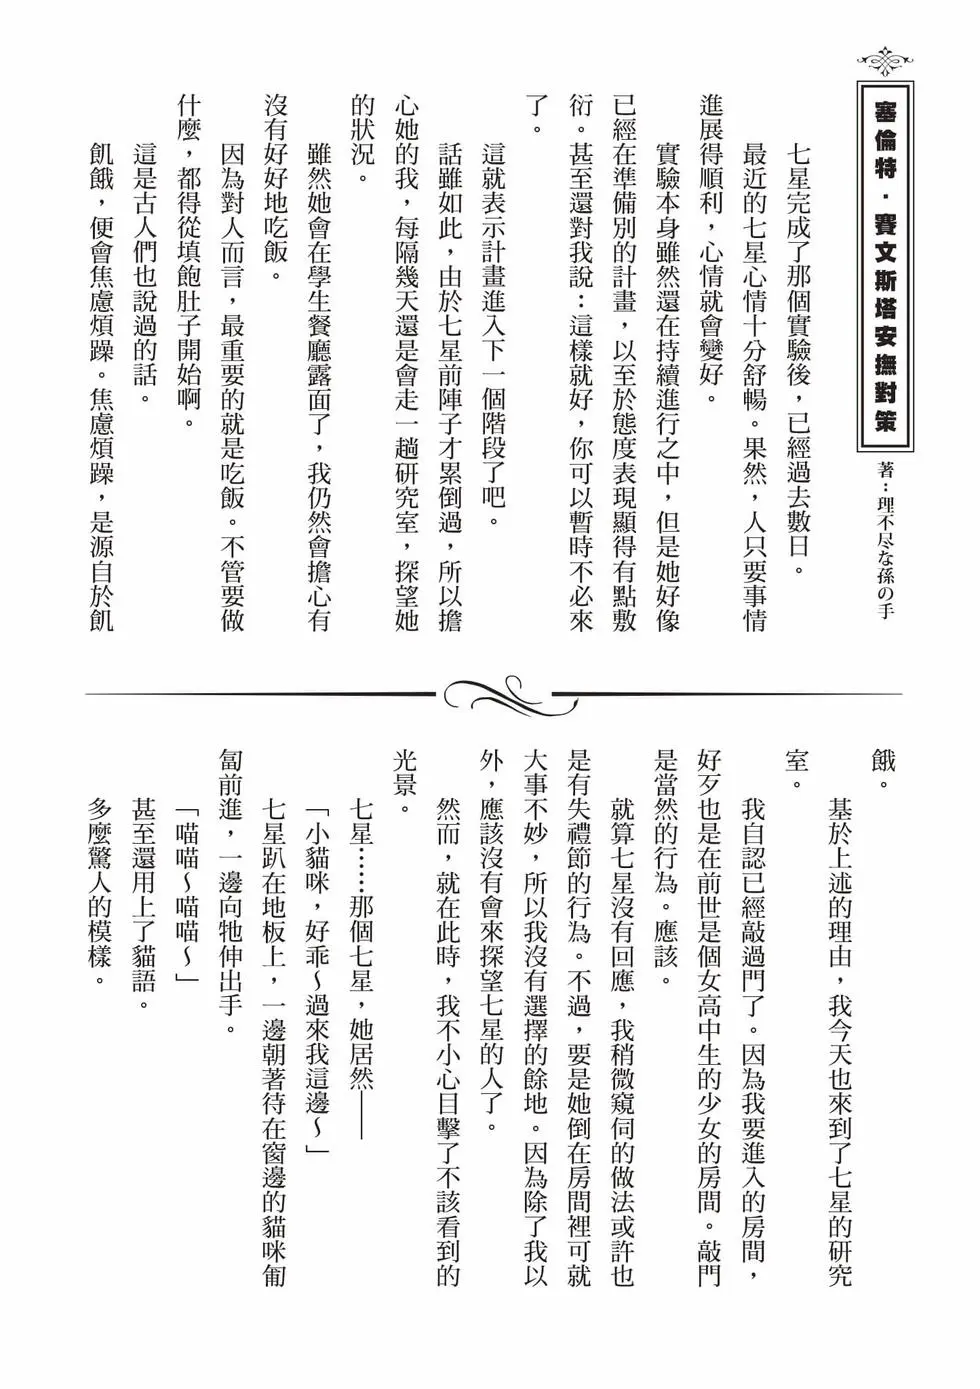 塞倫特・賽文斯塔安撫對策
著：理不尽な孫の手
七星完成了那個實驗後，已經過去數日。
最近的七星心情十分舒暢。果然，人只要事情
進展得順利，心情就會變好。
實驗本身雖然還在持續進行之中，但是她好像
已經在準備別的計畫，以至於態度表現顯得有點敷
衍。甚至還對我說：這樣就好，你可以暫時不必來
了。
這就表示計畫進入下一個階段了吧。
話雖如此，由於七星前陣子才累倒過，所以擔
心她的我，每隔幾天還是會走一趟研究室，探望她
的狀況。
雖然她會在學生餐廳露面了，我仍然會擔心有
沒有好好地吃飯。
因為對人而言，最重要的就是吃飯。不管要做
什麼，都得從填飽肚子開始啊。
這是古人們也說過的話。
飢餓，便會焦慮煩躁。焦慮煩躁，是源自於飢
餓。
基於上述的理由，我今天也來到了七星的研究
室。
我自認已經敲過門了。因為我要進入的房間，
好歹也是在前世是個女高中生的少女的房間。敲門
是當然的行為。應該。
就算七星沒有回應，我稍微窺伺的做法或許也
是有失禮節的行為。不過，要是她倒在房間裡可就
大事不妙，所以我沒有選擇的餘地。因為除了我以
外，應該沒有會來探望七星的人了。
然而，就在此時，我不小心目擊了不該看到的
光景。
七星……那個七星，她居然——
「小貓咪，好乖～過來我這邊～」
七星趴在地板上，一邊朝著待在窗邊的貓咪匍
匐前進，一邊向牠伸出手。
「喵喵～喵喵～」
甚至還用上了貓語。
多麼驚人的模樣。